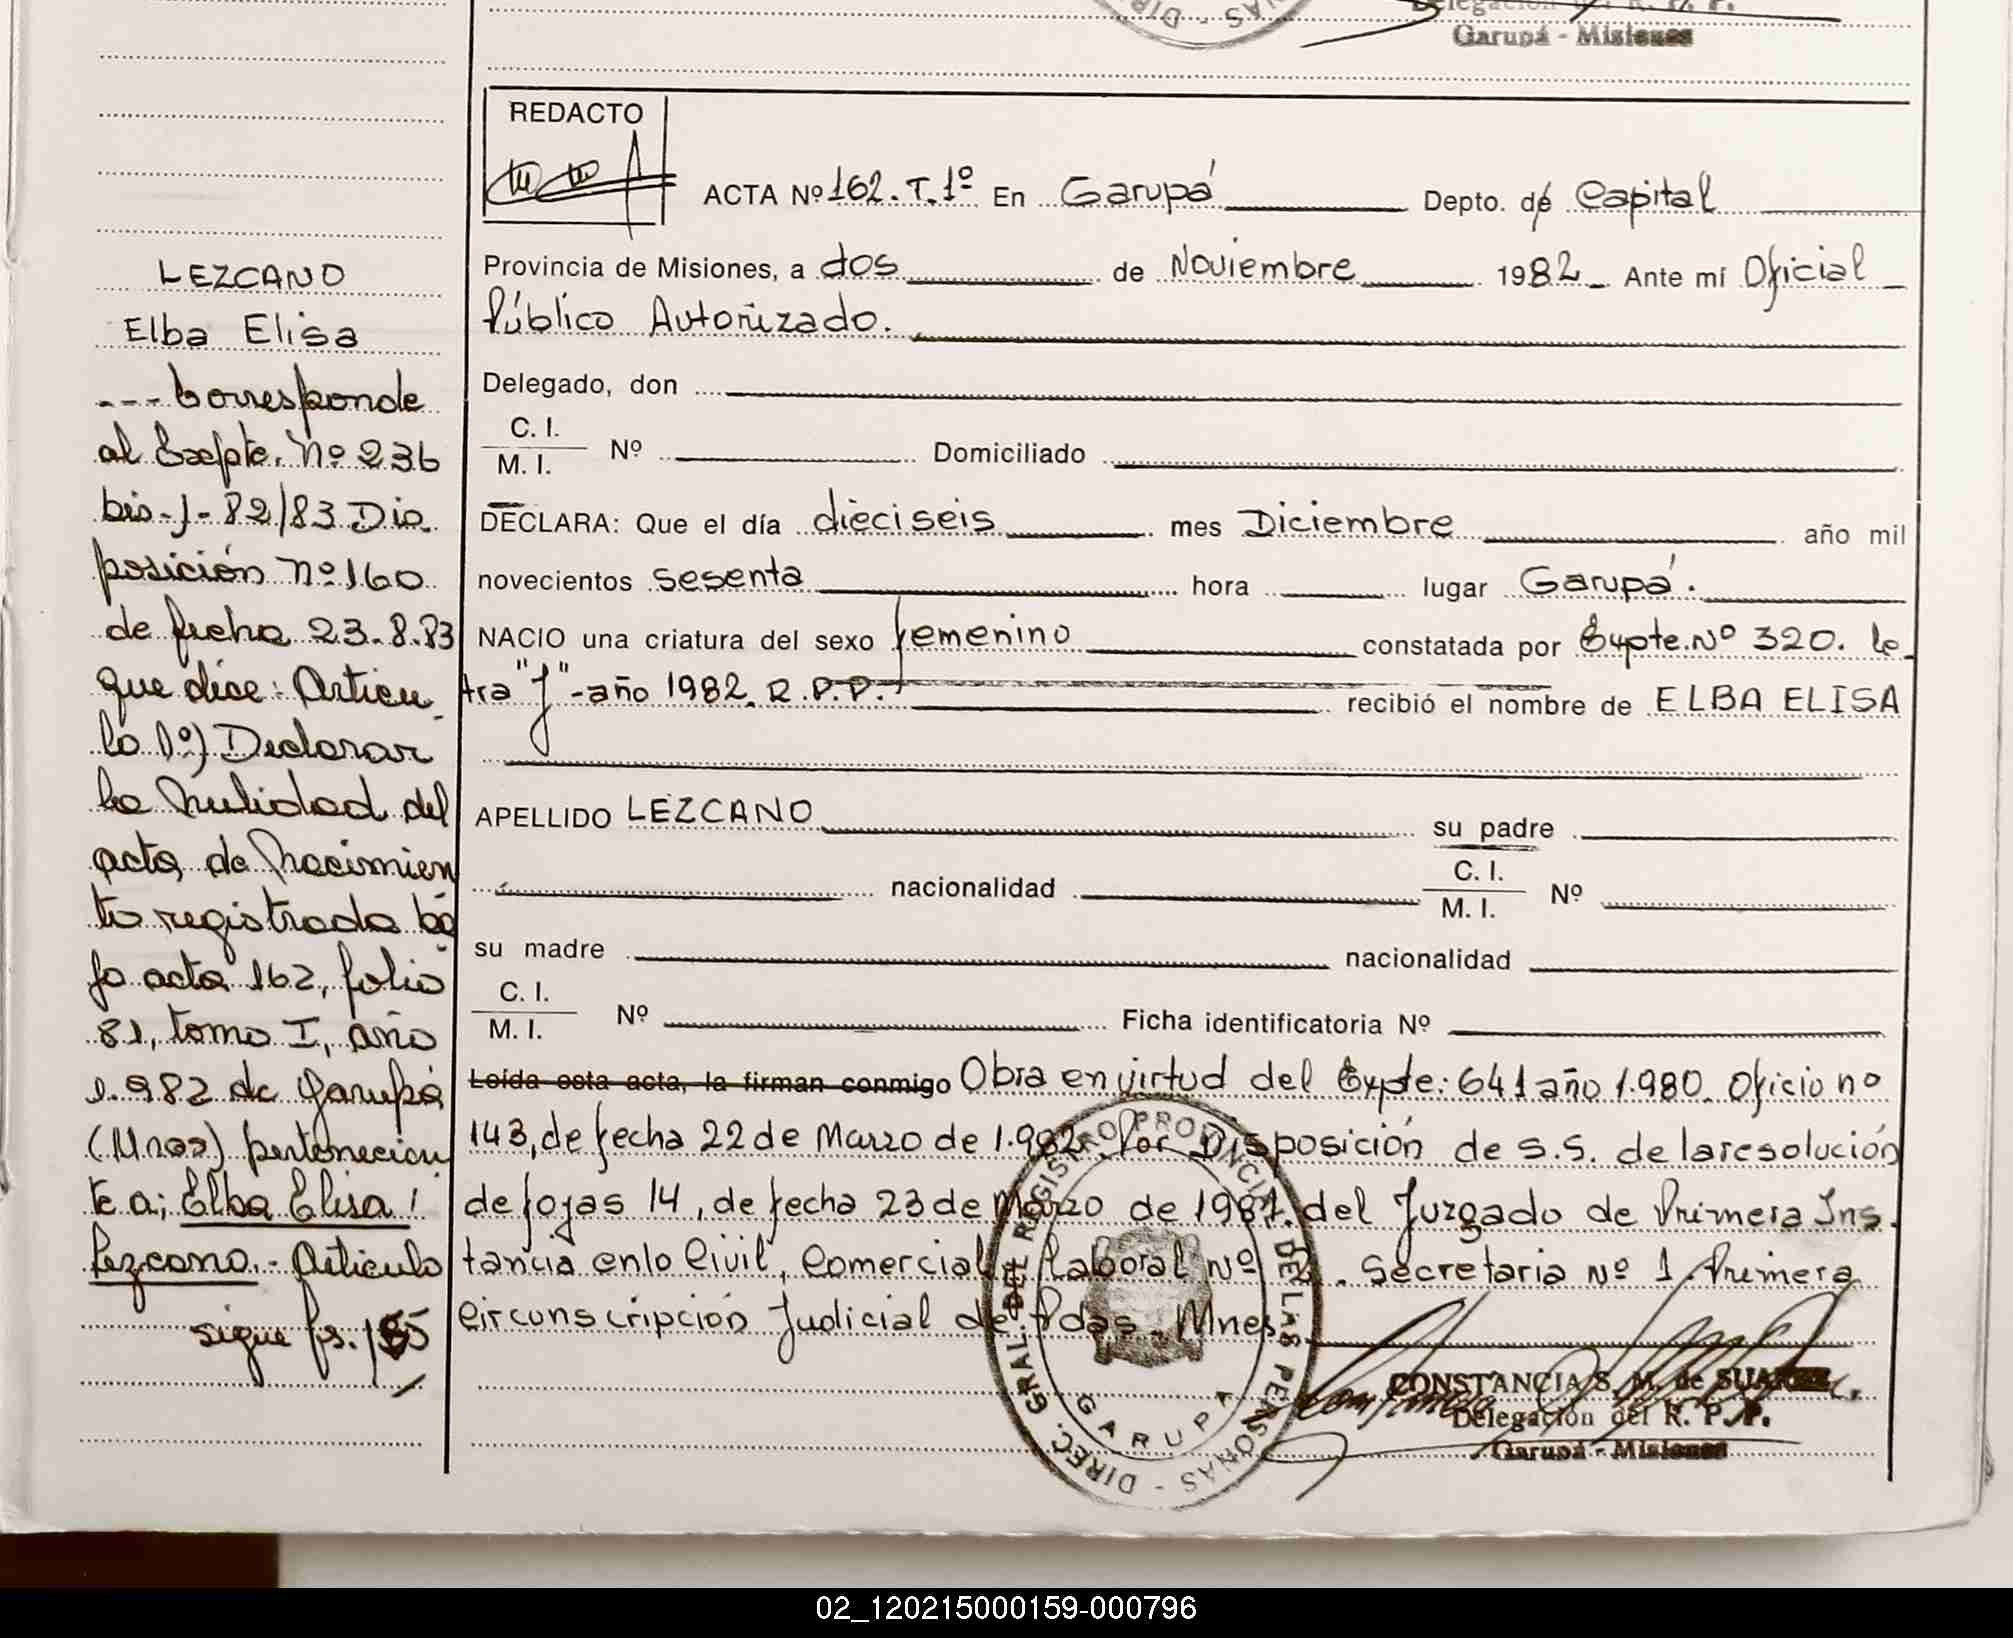 Delegación del R. P. P.
Garupá - Misiones
REDACTO
ACTA Nº 162. T. 1º En Garupá Depto. de Capital
Provincia de Misiones, a dos de Noviembre 1982 Ante mí Oficial
Público Autorizado.
Delegado, don
C. I.
M. I. Nº Domiciliado
DECLARA: Que el día dieciseis mes Diciembre año mil
novecientos sesenta hora lugar Garupá.
NACIO una criatura del sexo femenino constatada por Expte. Nº 320. le
tra "J" - año 1982. R.P.P. recibió el nombre de ELBA ELISA
APELLIDO LEZCANO su padre
nacionalidad C. I.
M. I. Nº
su madre nacionalidad
C. I.
M. I. Nº Ficha identificatoria Nº
Leída esta acta, la firman conmigo Obra en virtud del Expte: 641 año 1.980. Oficio nº
143, de fecha 22 de Marzo de 1.982. Por Disposición de S.S. de la resolución
de fojas 14, de fecha 23 de Marzo de 1981. del Juzgado de Primera Ins.
tancia en lo Civil, Comercial Laboral Nº Secretaria Nº 1. Primera
Circunscripción Judicial de Pdas. Mnes.
DIREC. GRAL. DEL REGISTRO PROVINCIAL DE LAS PERSONAS
GARUPA
CONSTANCIA S. M. de SUAREZ
Delegación del R. P. P.
Garupá - Misiones
LEZCANO
Elba Elisa
--- Corresponde
al Expte. Nº 236
bis-J-82/83 Dis
posición Nº 160
de fecha 23.8.83
que dice: Articu
lo 1º) Declarar
la Nulidad del
acta de Nacimien
to registrada ba
jo acta 162, folio
81, tomo I, año
1.982 de Garupá
(Mnes) pertenecien
te a; Elba Elisa
Lezcano.- Articulo
sigue fs. 155
02_120215000159-000796